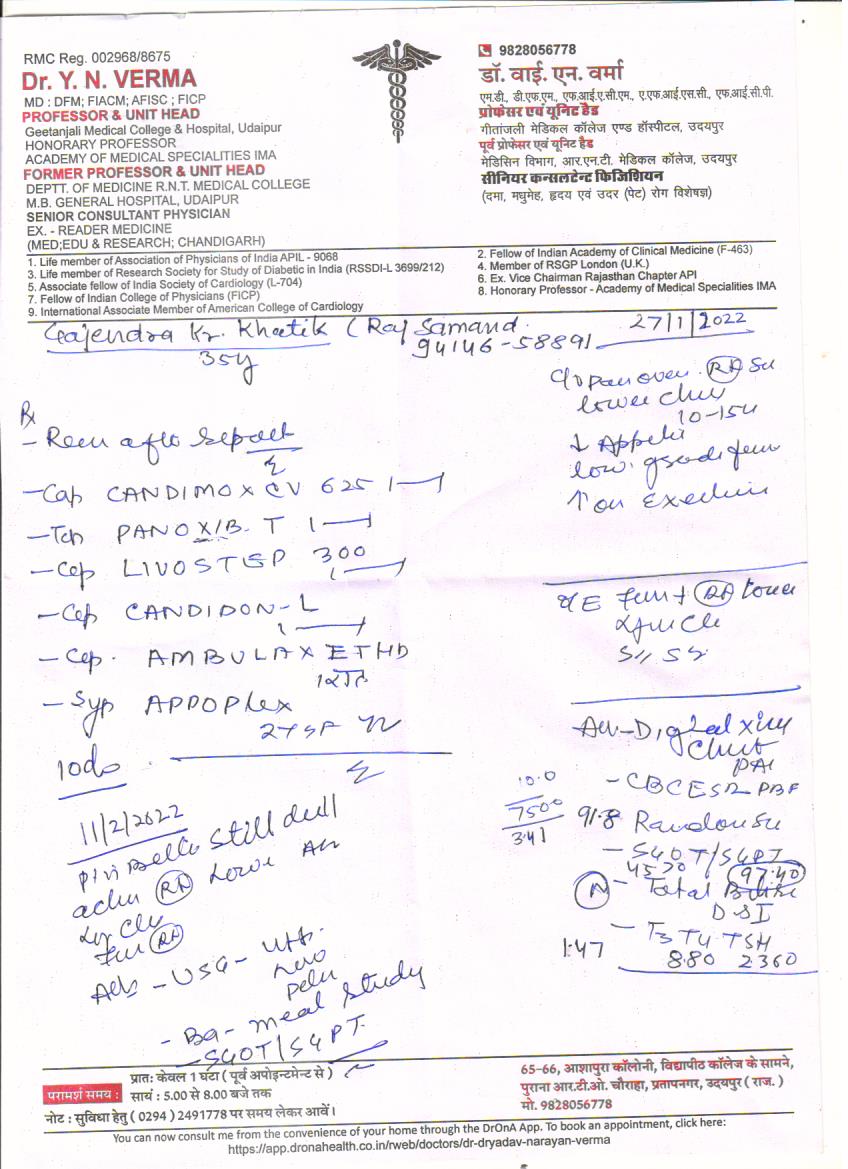 RMC Reg. 002968/8675
Dr. Y. N. VERMA
MD : DFM; FIACM; AFISC ; FICP
PROFESSOR & UNIT HEAD
Geetanjali Medical College & Hospital, Udaipur
HONORARY PROFESSOR
ACADEMY OF MEDICAL SPECIALITIES IMA
FORMER PROFESSOR & UNIT HEAD
DEPTT. OF MEDICINE R.N.T. MEDICAL COLLEGE
M.B. GENERAL HOSPITAL, UDAIPUR
SENIOR CONSULTANT PHYSICIAN
EX. - READER MEDICINE
(MED;EDU & RESEARCH; CHANDIGARH)
9828056778
डॉ. वाई. एन. वर्मा
एम.डी., डी.एफ.एम., एफ.आई.ए.सी.एम., ए.एफ.आई.एस.सी., एफ.आई.सी.पी.
प्रोफेसर एवं यूनिट हैड
गीतांजली मेडिकल कॉलेज एण्ड हॉस्पीटल, उदयपुर
पूर्व प्रोफेसर एवं यूनिट हैड
मेडिसिन विभाग, आर.एन.टी. मेडिकल कॉलेज, उदयपुर
सीनियर कन्सलटेन्ट फिजिशियन
(दमा, मधुमेह, हृदय एवं उदर (पेट) रोग विशेषज्ञ)
1. Life member of Association of Physicians of India APIL - 9068
3. Life member of Research Society for Study of Diabetic in India (RSSDI-L 3699/212)
5. Associate fellow of India Society of Cardiology (L-704)
7. Fellow of Indian College of Physicians (FICP)
9. International Associate Member of American College of Cardiology
2. Fellow of Indian Academy of Clinical Medicine (F-463)
4. Member of RSGP London (U.K.)
6. Ex. Vice Chairman Rajasthan Chapter API
8. Honorary Professor - Academy of Medical Specialities IMA
Gajendra Kr. Khatik (Raj Samand 27/1/2022
35y 94146-58891
lower
10-15
↓ Appetite
low
↑ on
Rx
- Cap CANDIMOX CV 625 1
- PANOX/B. T 1
- Cap LIVOSTGP 300
1
- Cap CANDIDON-L
1
- Cap. AMBULAX ETHD
- Syp APPOPlex
2 TSF
10 do
Adv - Digital
Chest
PA
- CBC ESR PBF
10.0
7500
3.41
91.8 Random Su
- SGOT/SGPT
45.70 97.40
N - Total
D S I
- T3 T4 TSH
1.47 8.80 2360
11/2/2022
Still dull
Adv - USG -
- Ba - meal study
- SGOT/SGPT.
परामर्श समय :
प्रातः केवल 1 घंटा ( पूर्व अपोइन्टमेन्ट से )
सायं : 5.00 से 8.00 बजे तक
नोट : सुविधा हेतु ( 0294 ) 2491778 पर समय लेकर आवें।
65-66, आशापुरा कॉलोनी, विद्यापीठ कॉलेज के सामने,
पुराना आर.टी.ओ. चौराहा, प्रतापनगर, उदयपुर ( राज. )
मो. 9828056778
You can now consult me from the convenience of your home through the DrOnA App. To book an appointment, click here:
https://app.dronahealth.co.in/rweb/doctors/dr-dryadav-narayan-verma